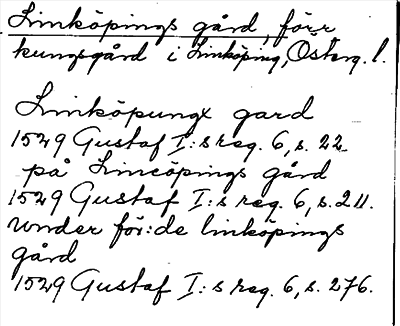 Linköpings gård, förr
kungsgård i Linköping, Österg. l.
Linköpungx gard
1529 Gustaf I:s reg. 6, s. 22
på Lincöpings gård
1529 Gustaf I:s reg. 6, s. 211.
Under för:de linköpings
gård
1529 Gustaf I:s reg. 6, s. 276.